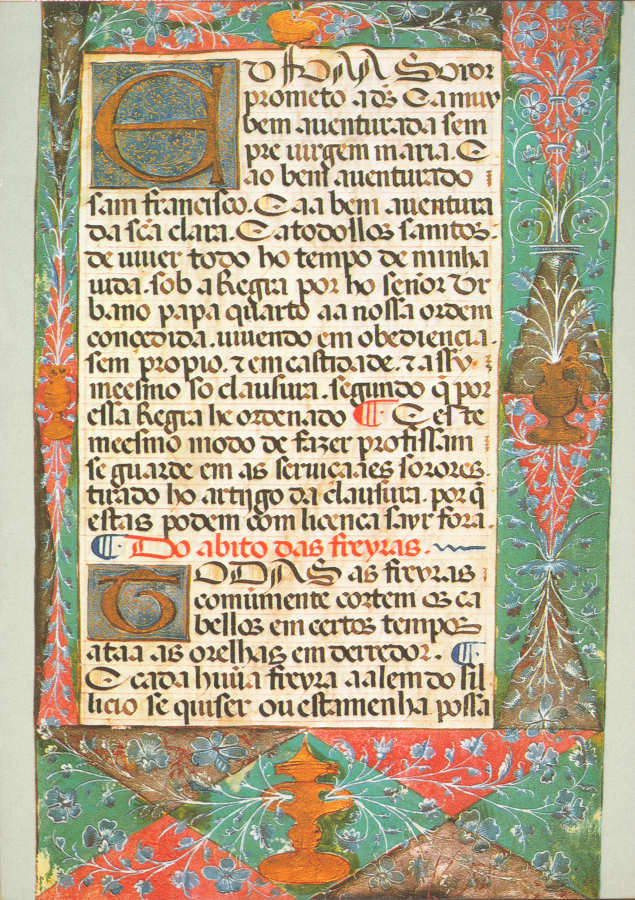 EU FOAA Soror
prometo a dš E a muy
bem auenturada sem
pre uirgem maria. E
ao bem auenturado
sam francisco. E a a bem auentura
da sc̃a clara. E a todollos sanitos.
de uiuer todo ho tempo de minha
uida. sob a Regra por ho señor Ur
bano papa quarto aa nossa ordem
concedida. uiuendo em obediencia.
sem proprio. ⁊ em castidade. ⁊ assy
meesmo so clausura. segundo q̃ por
essa Regra he ordenado ¶ E este
meesmo modo de fazer profissam
se guarde em as seruiçaaes sorores.
tirado ho artijgo da clausura. por q̃
estas podem com licença sayr fora.
¶ Do abito das freyras.
TODAS as freyras
comũmente cortem os ca
bellos em certos tempos
ataa as orelhas em derredor. ¶
E cada hũua freyra aalem do sil
licio se quiser ou estamenha possa